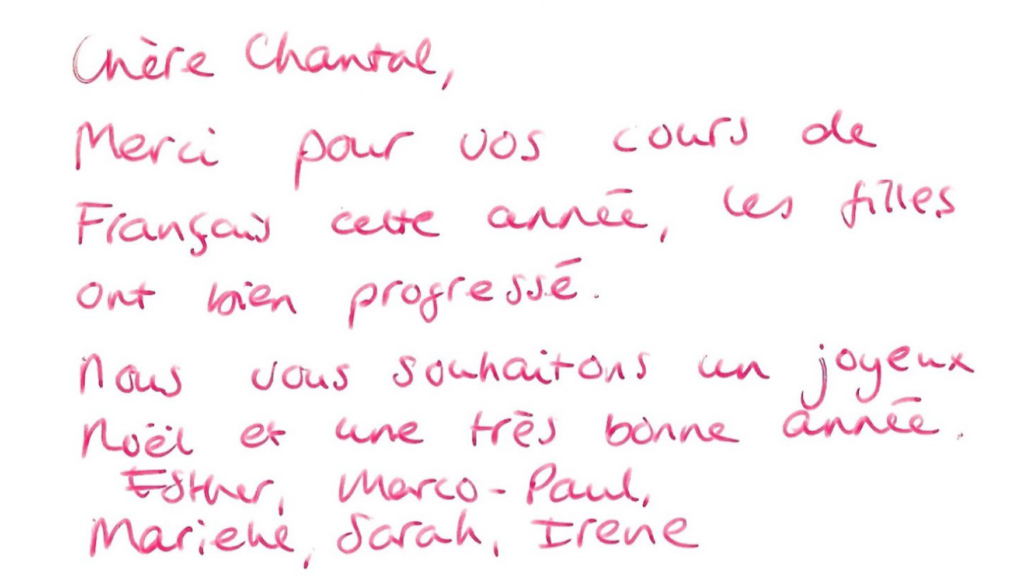 Chère Chantal,
Merci pour vos cours de
Français cette année, les filles
ont bien progressé.
Nous vous souhaitons un joyeux
Noël et une très bonne année.
Esther, Marco-Paul,
Sarah, Irene